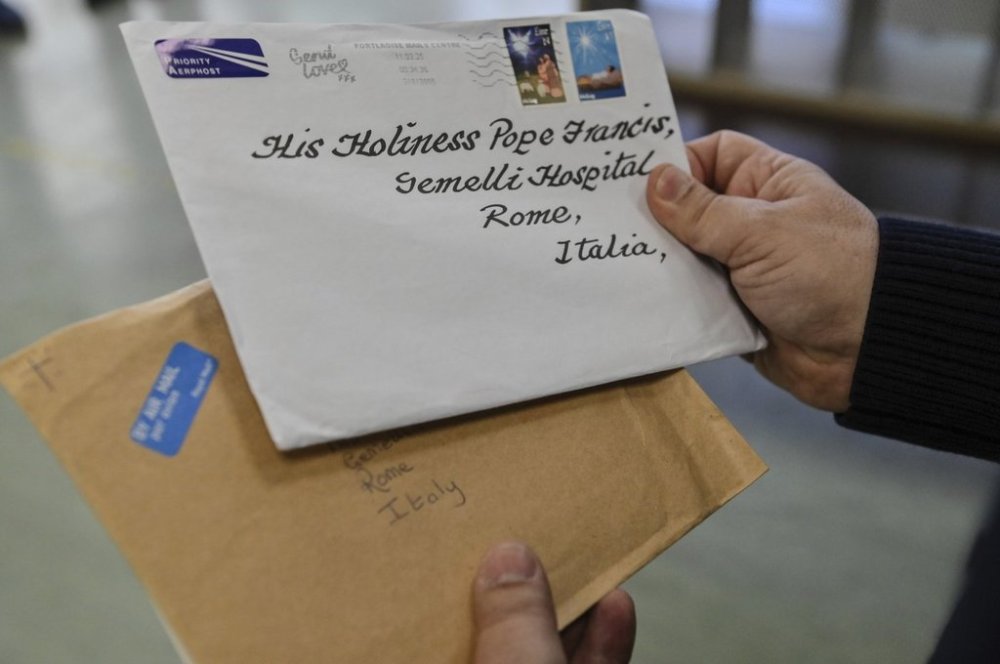 PRIORITY
AERPHOST
Send
love
PORTLAOISE MAILS CENTRE
His Holiness Pope Francis,
Gemelli Hospital
Rome,
Italia,
BY AIR MAIL
par avion
Royal Mail
Rome
Italy